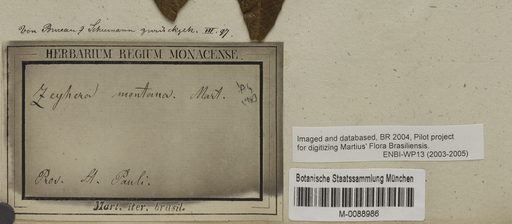 von Bureau & Schumann zurückgek. III. 97
HERBARIUM REGIUM MONACENSE.
Zeyhera montana. Mart.
Prov. St. Pauli.
Mart. iter. brasil.
Imaged and databased, BR 2004, Pilot project
for digitizing Martius' Flora Brasiliensis.
ENBI-WP13 (2003-2005)
Botanische Staatssammlung München
M-0088986